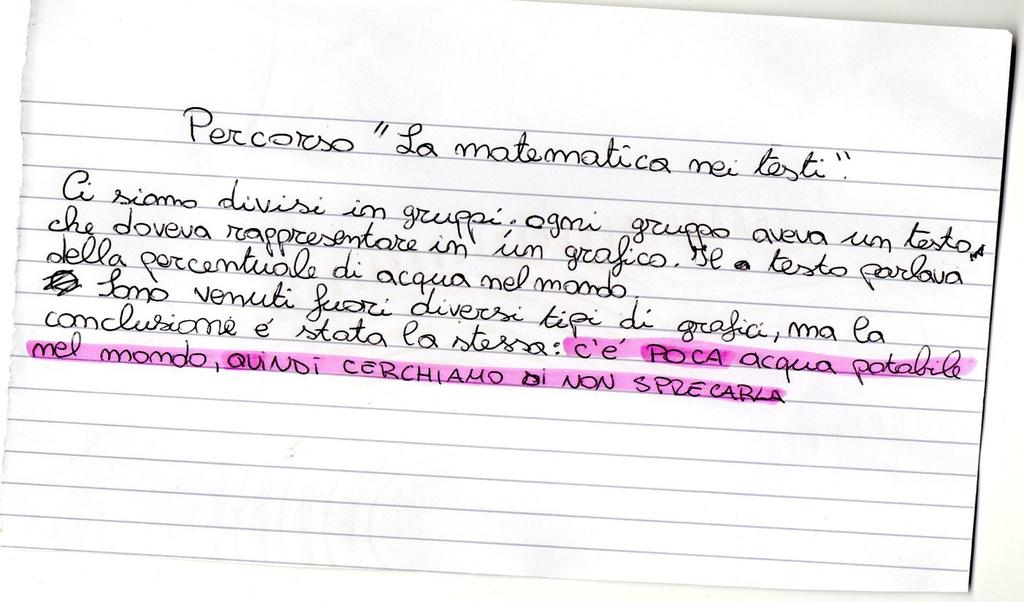 Percorso "La matematica nei testi".
Ci siamo divisi in gruppi. ogni gruppo aveva un testo
che doveva rappresentare in un grafico. Il testo parlava
della percentuale di acqua nel mondo.
Sono venuti fuori diversi tipi di grafici, ma la
conclusione é stata la stessa: c'é POCA acqua potabile
nel mondo, QUINDI CERCHIAMO DI NON SPRECARLA